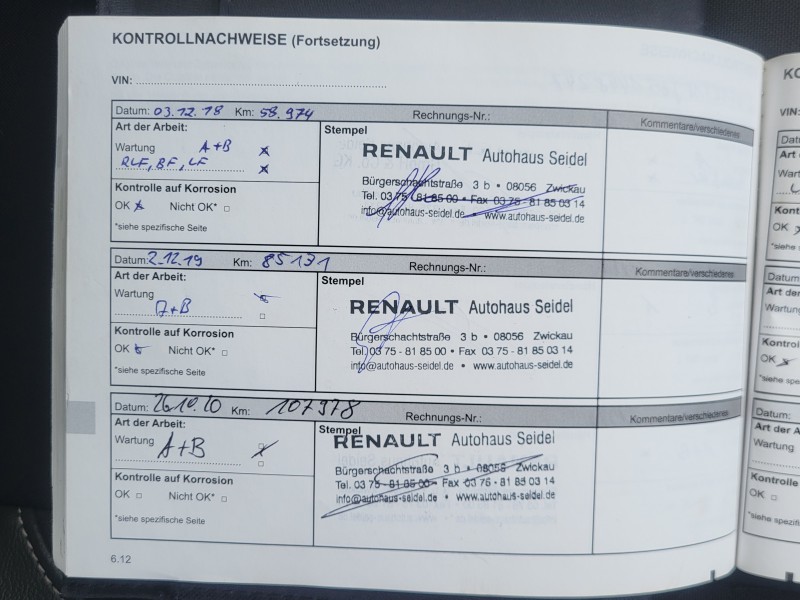 KONTROLLNACHWEISE (Fortsetzung)
VIN:
Datum: 03.12.18 Km: 58.974 Rechnungs-Nr.: Kommentare/verschiedenes
Art der Arbeit:
Wartung A+B
RLF, BF, LF
Kontrolle auf Korrosion
OK Nicht OK*
*siehe spezifische Seite
Stempel
RENAULT Autohaus Seidel
Bürgerschachtstraße 3 b • 08056 Zwickau
Tel. 03 75 - 81 85 00 • Fax 03 75 - 81 85 03 14
info@autohaus-seidel.de • www.autohaus-seidel.de
Datum: 2.12.19 Km: 85131 Rechnungs-Nr.: Kommentare/verschiedenes
Art der Arbeit:
Wartung
A+B
Kontrolle auf Korrosion
OK Nicht OK*
*siehe spezifische Seite
Stempel
RENAULT Autohaus Seidel
Bürgerschachtstraße 3 b • 08056 Zwickau
Tel. 03 75 - 81 85 00 • Fax 03 75 - 81 85 03 14
info@autohaus-seidel.de • www.autohaus-seidel.de
Datum: 26.10.20 Km: 107978 Rechnungs-Nr.: Kommentare/verschiedenes
Art der Arbeit:
Wartung A+B
Kontrolle auf Korrosion
OK Nicht OK*
*siehe spezifische Seite
Stempel
RENAULT Autohaus Seidel
Bürgerschachtstraße 3 b • 08056 Zwickau
Tel. 03 75 - 81 85 00 • Fax 03 75 - 81 85 03 14
info@autohaus-seidel.de • www.autohaus-seidel.de
6.12
VIN:
OK
OK
Datum:
Wartung
Kontrolle
OK